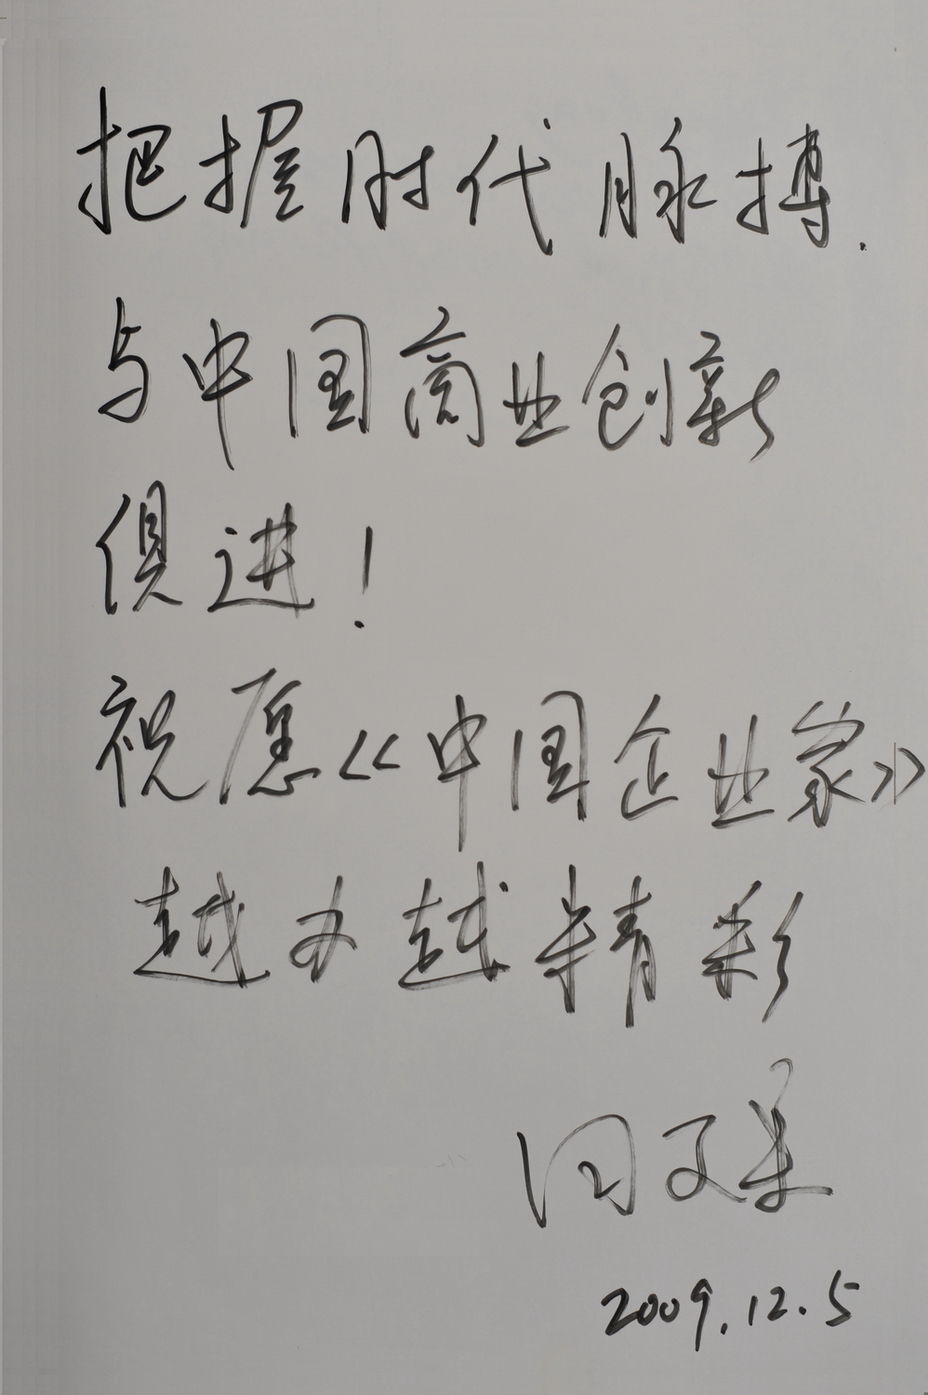 把握时代脉搏.
与中国商业创新
俱进!
祝愿《中国企业家》
越办越精彩
2009.12.5